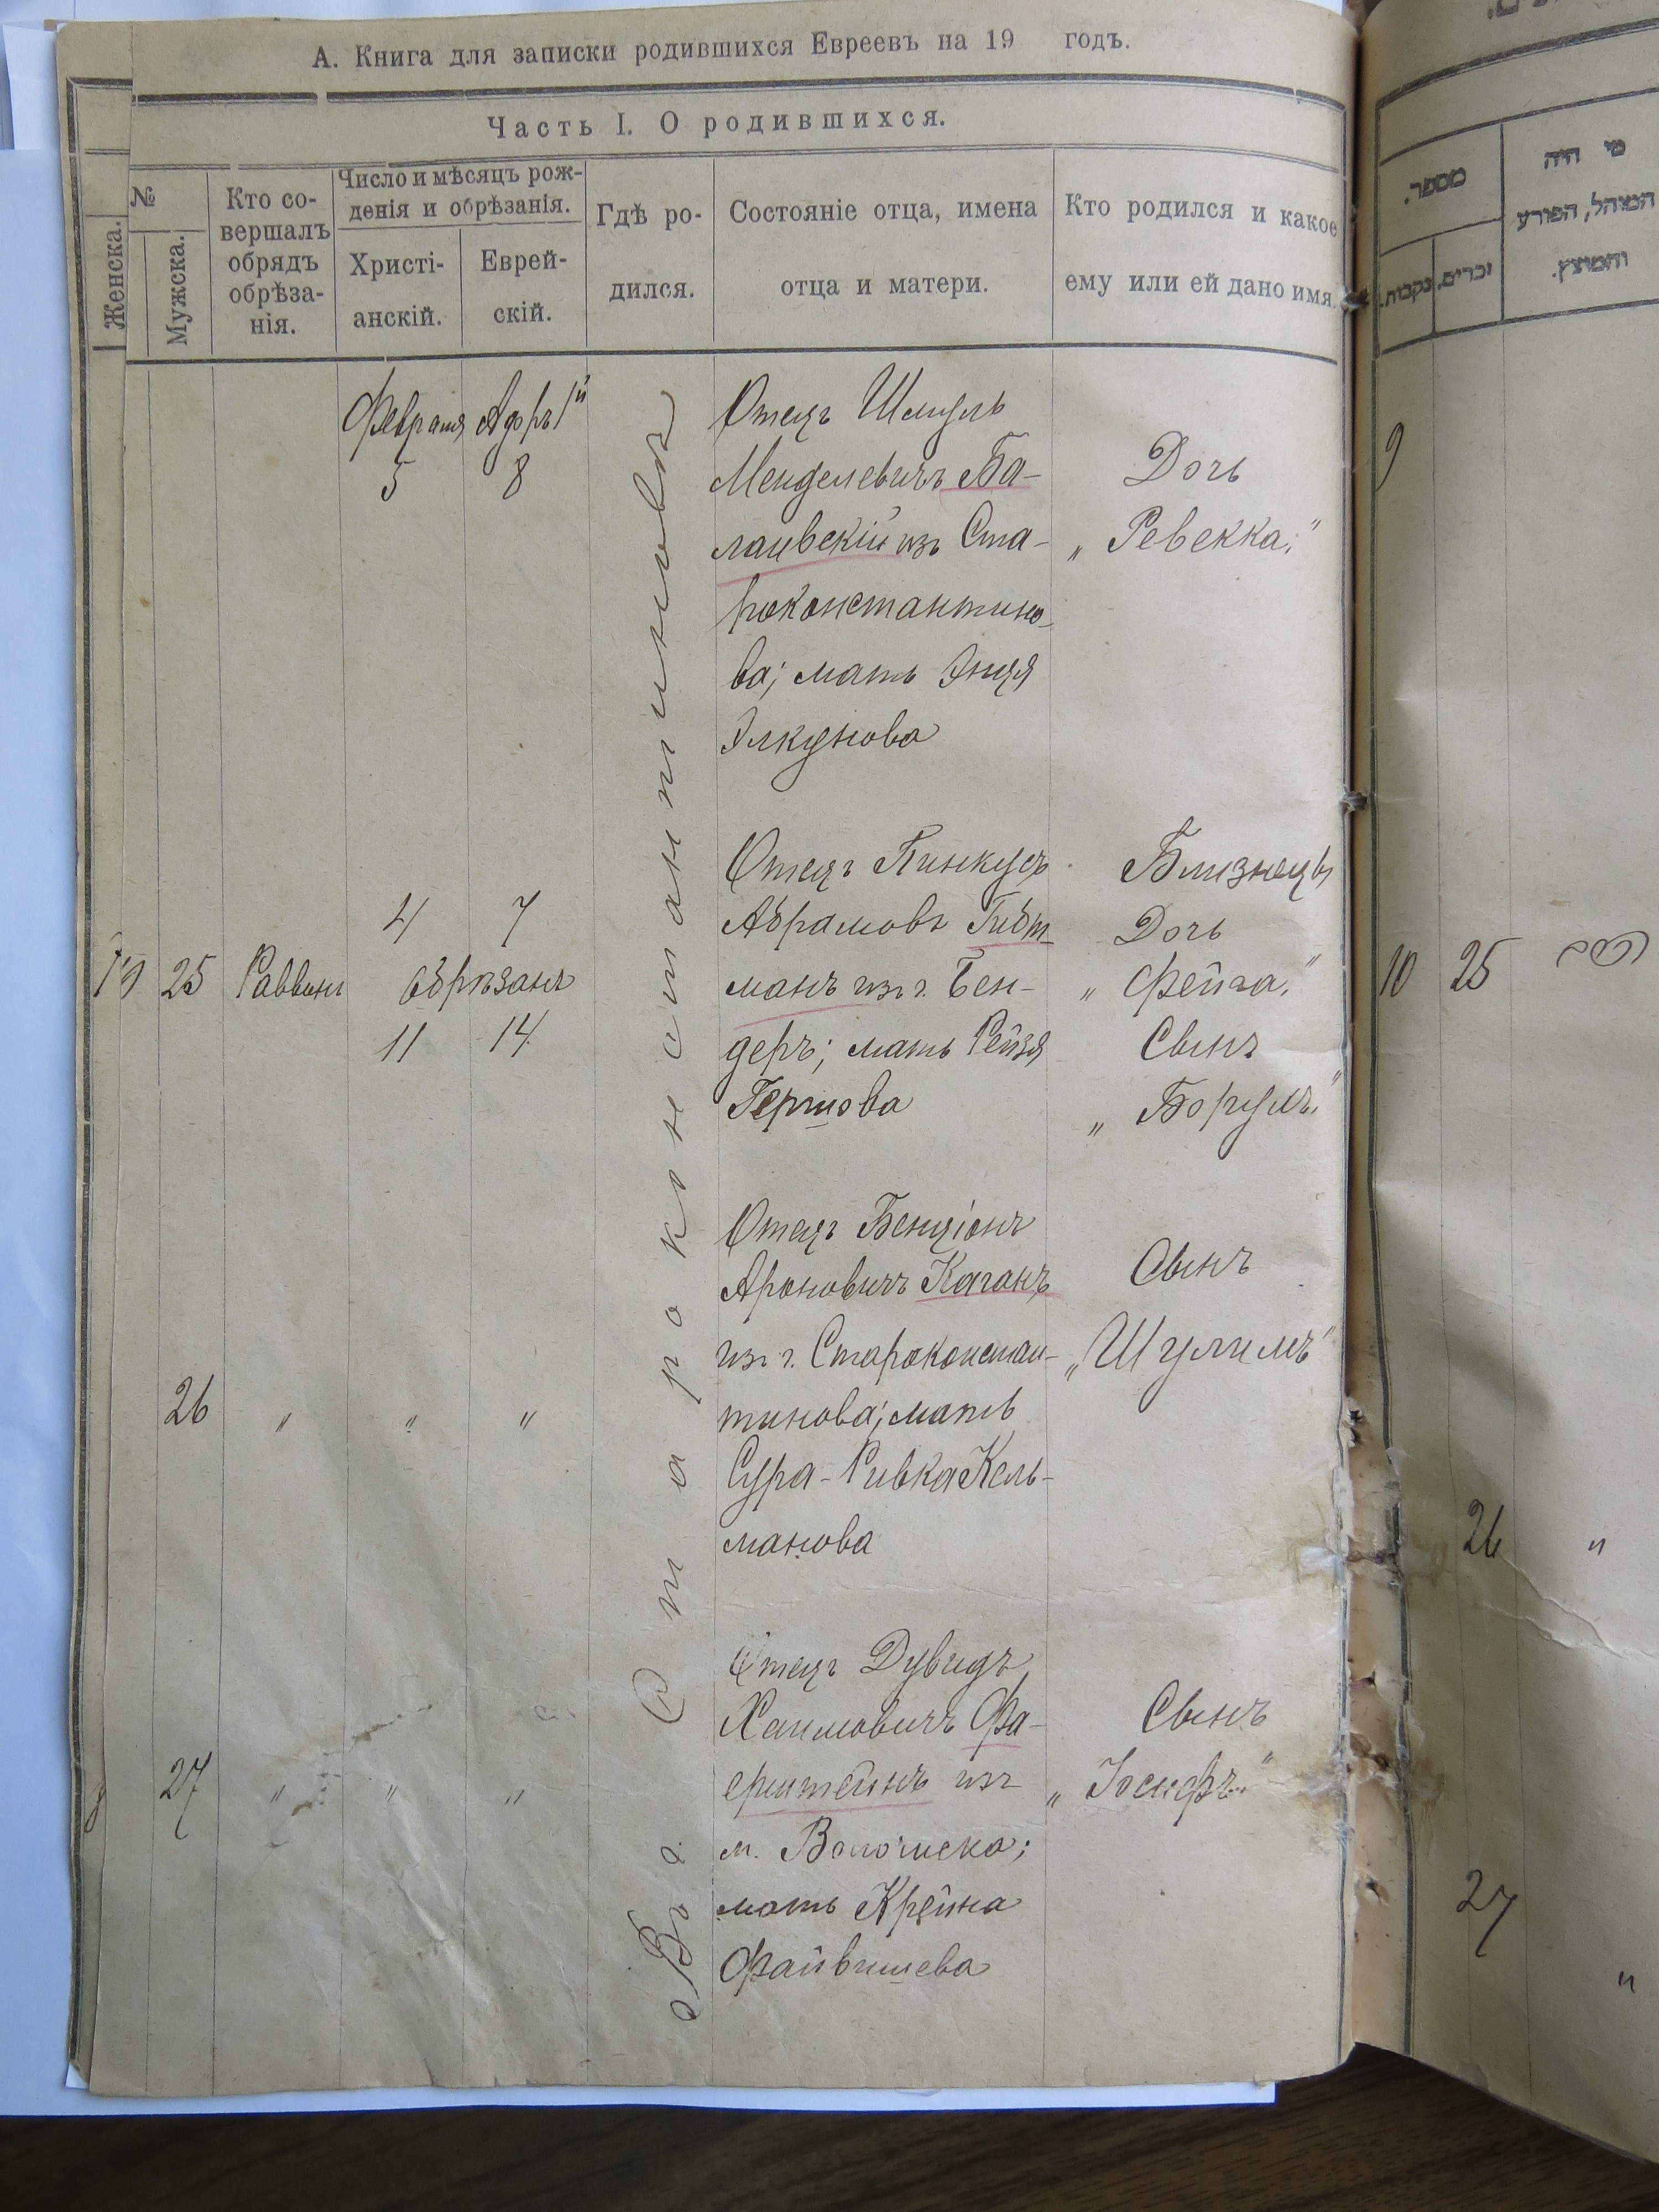 А. Книга для записки родившихся Евреевъ на 19 годъ.
Часть I. О родившихся.
№
Женска.
Мужска.
Кто со-
вершалъ
обрядъ
обрѣза-
нія.
Число и мѣсяцъ рож-
денія и обрѣзанія.
Христі-
анскій.
Еврей-
скій.
Гдѣ ро-
дился.
Состояніе отца, имена
отца и матери.
Кто родился и какое
ему или ей дано имя.
Въ г. Староконстантиновѣ
Февраля Адръ 1й
5 8
Отецъ Шмуль
Менделевичъ Ба-
лаивскій изъ Ста-
роконстантино-
ва; мать Энця
Элкунова
Дочь
„Ревекка."
10 25 Раввинъ
4 7
обрѣзанъ
11 14
Отецъ Пинкусъ
Абрамовъ Гибт-
манъ изъ г. Бен-
деръ; мать Рейзя
Гершова
Близнецы
Дочь
„Фейга."
Сынъ
„Борухъ."
26 " " "
Отецъ Бенціонъ
Ароновичъ Каганъ
изъ г. Староконстан-
тинова; мать
Сура-Ривка Кель-
манова
Сынъ
„Шулимъ"
27 " " "
Отецъ Дувидъ
Хаимовичъ Фа-
ерштейнъ изъ
м. Волочиска;
мать Крейна
Файвишева
Сынъ
„Іосифъ."
מספר.
נקבות.
זכרים.
מי היה
המוהל, הפורע
והמוצץ.
9
10 25
26 "
27 "